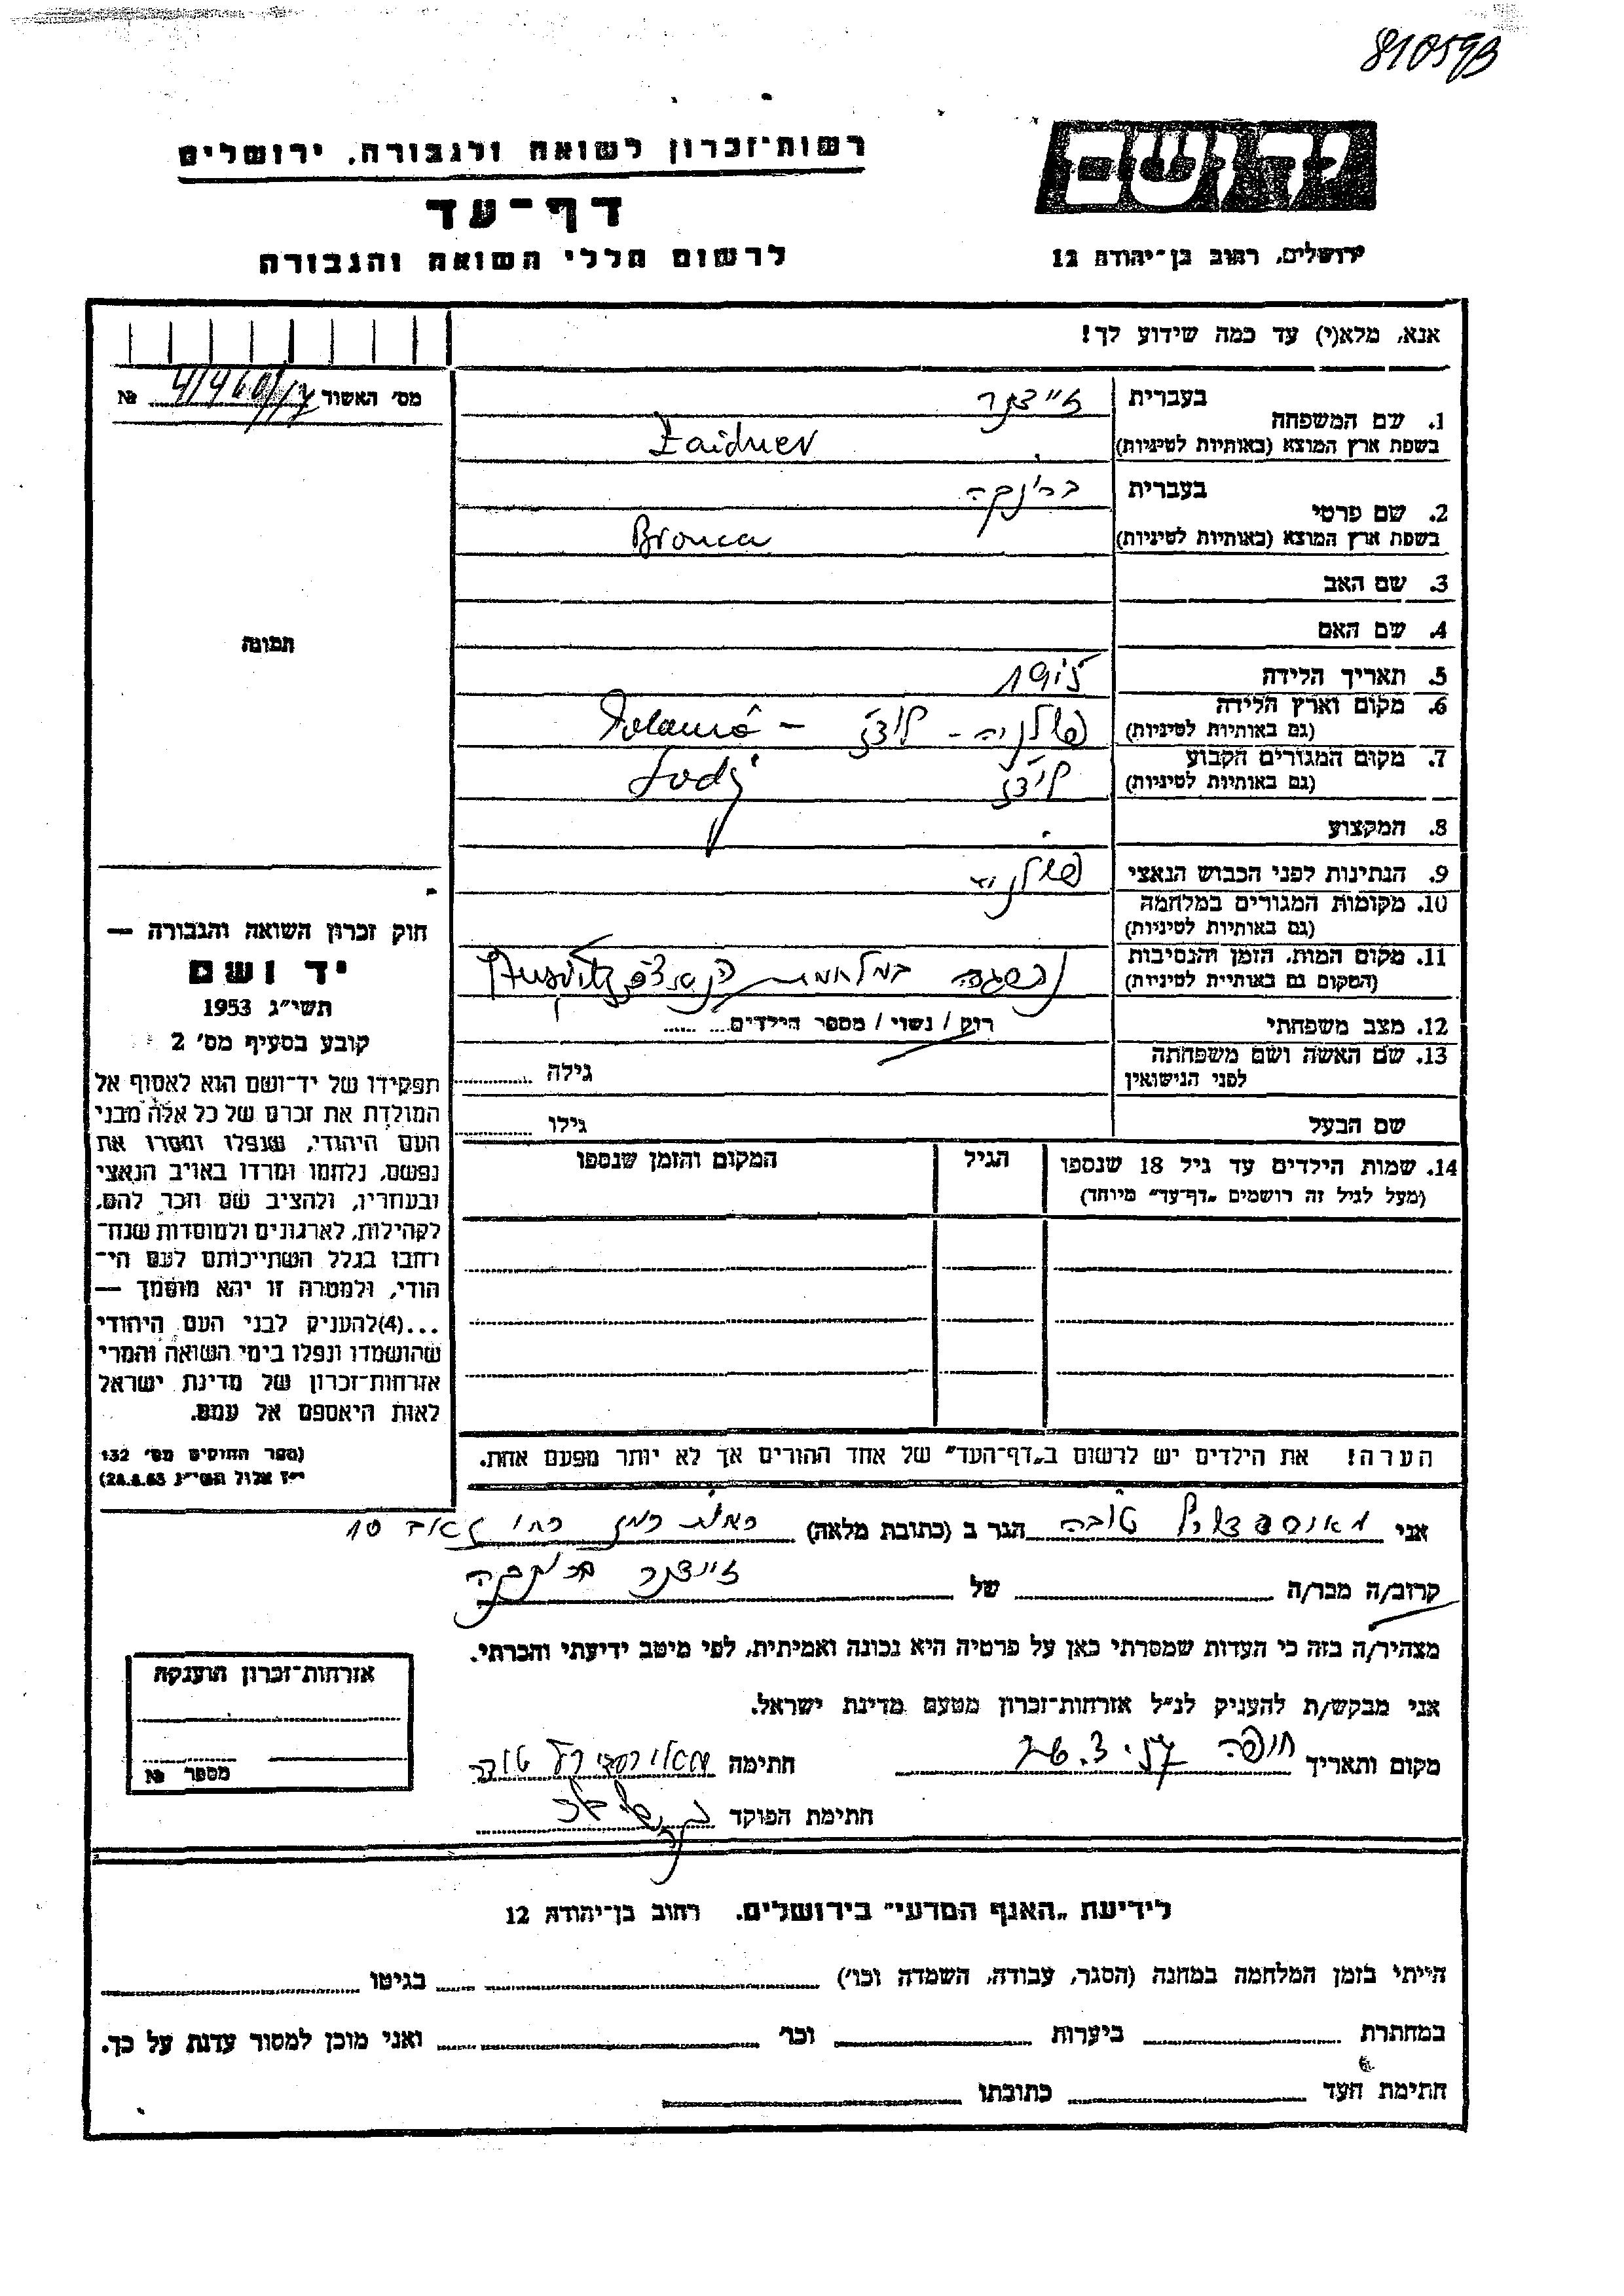 810593
יד ושם
רשות־זכרון לשואה ולגבורה, ירושלים
דף־עד
לרשום חללי השואה והגבורה
ירושלים, רחוב בן־יהודה 12
אנא, מלא(י) עד כמה שידוע לך!
מס' האשור №
1. שם המשפחה
בעברית זיידנר
בשפת ארץ המוצא (באותיות לטיניות) Zaidner
2. שם פרטי
בעברית ברונקה
בשפת ארץ המוצא (באותיות לטיניות) Bronca
3. שם האב
4. שם האם
תמונה
5. תאריך הלידה
6. מקום וארץ הלידה
(גם באותיות לטיניות) פולניה - לודז -
7. מקום המגורים הקבוע
(גם באותיות לטיניות) לודז Lodz
8. המקצוע
9. הנתינות לפני הכבוש הנאצי פולניה
10. מקומות המגורים במלחמה
(גם באותיות לטיניות)
11. מקום המות, הזמן והנסיבות
(המקום גם באותיית לטיניות) נספתה במלחמת
12. מצב משפחתי רווק / נשוי / מספר הילדים
13. שם האשה ושם משפחתה
לפני הנישואין גילה
שם הבעל גילו
14. שמות הילדים עד גיל 18 שנספו
(מעל לגיל זה רושמים „דף־עד" מיוחד)
הגיל
המקום והזמן שנספו
הערה! את הילדים יש לרשום ב„דף־העד" של אחד ההורים אך לא יותר מפעם אחת.
חוק זכרון השואה והגבורה —
יד ושם
תשי"ג 1953
קובע בסעיף מס' 2
תפקידו של יד־ושם הוא לאסוף אל
המולדת את זכרם של כל אלה מבני
העם היהודי, שנפלו ומסרו את
נפשם, נלחמו ומרדו באויב הנאצי
ובעוזריו, ולהציב שם וזכר להם,
לקהילות, לארגונים ולמוסדות שנח־
רבו בגלל השתייכותם לעם הי־
הודי, ולמטרה זו יהא מוסמך —
...(4)להעניק לבני העם היהודי
שהושמדו ונפלו בימי השואה והמרי
אזרחות־זכרון של מדינת ישראל
לאות היאספם אל עמם.
(ספר החוקים מס' 132
י"ז אלול תשי"ג 28.8.53)
אני טובה הגר ב (כתובת מלאה) רמת רמז 10
קרוב/ה מכר/ה של זיידנר ברונקה
מצהיר/ה בזה כי העדות שמסרתי כאן על פרטיה היא נכונה ואמיתית, לפי מיטב ידיעתי והכרתי.
אני מבקש/ת להעניק לנ"ל אזרחות־זכרון מטעם מדינת ישראל.
מקום ותאריך חיפה חתימה טובה
חתימת הפוקד
אזרחות־זכרון הוענקה
מספר №
לידיעת „האגף המדעי" בירושלים, רחוב בן־יהודה 12
הייתי בזמן המלחמה במחנה (הסגר, עבודה, השמדה וכו') בגיטו
במחתרת ביערות וכו' ואני מוכן למסור עדות על כך.
חתימת העד כתובתו